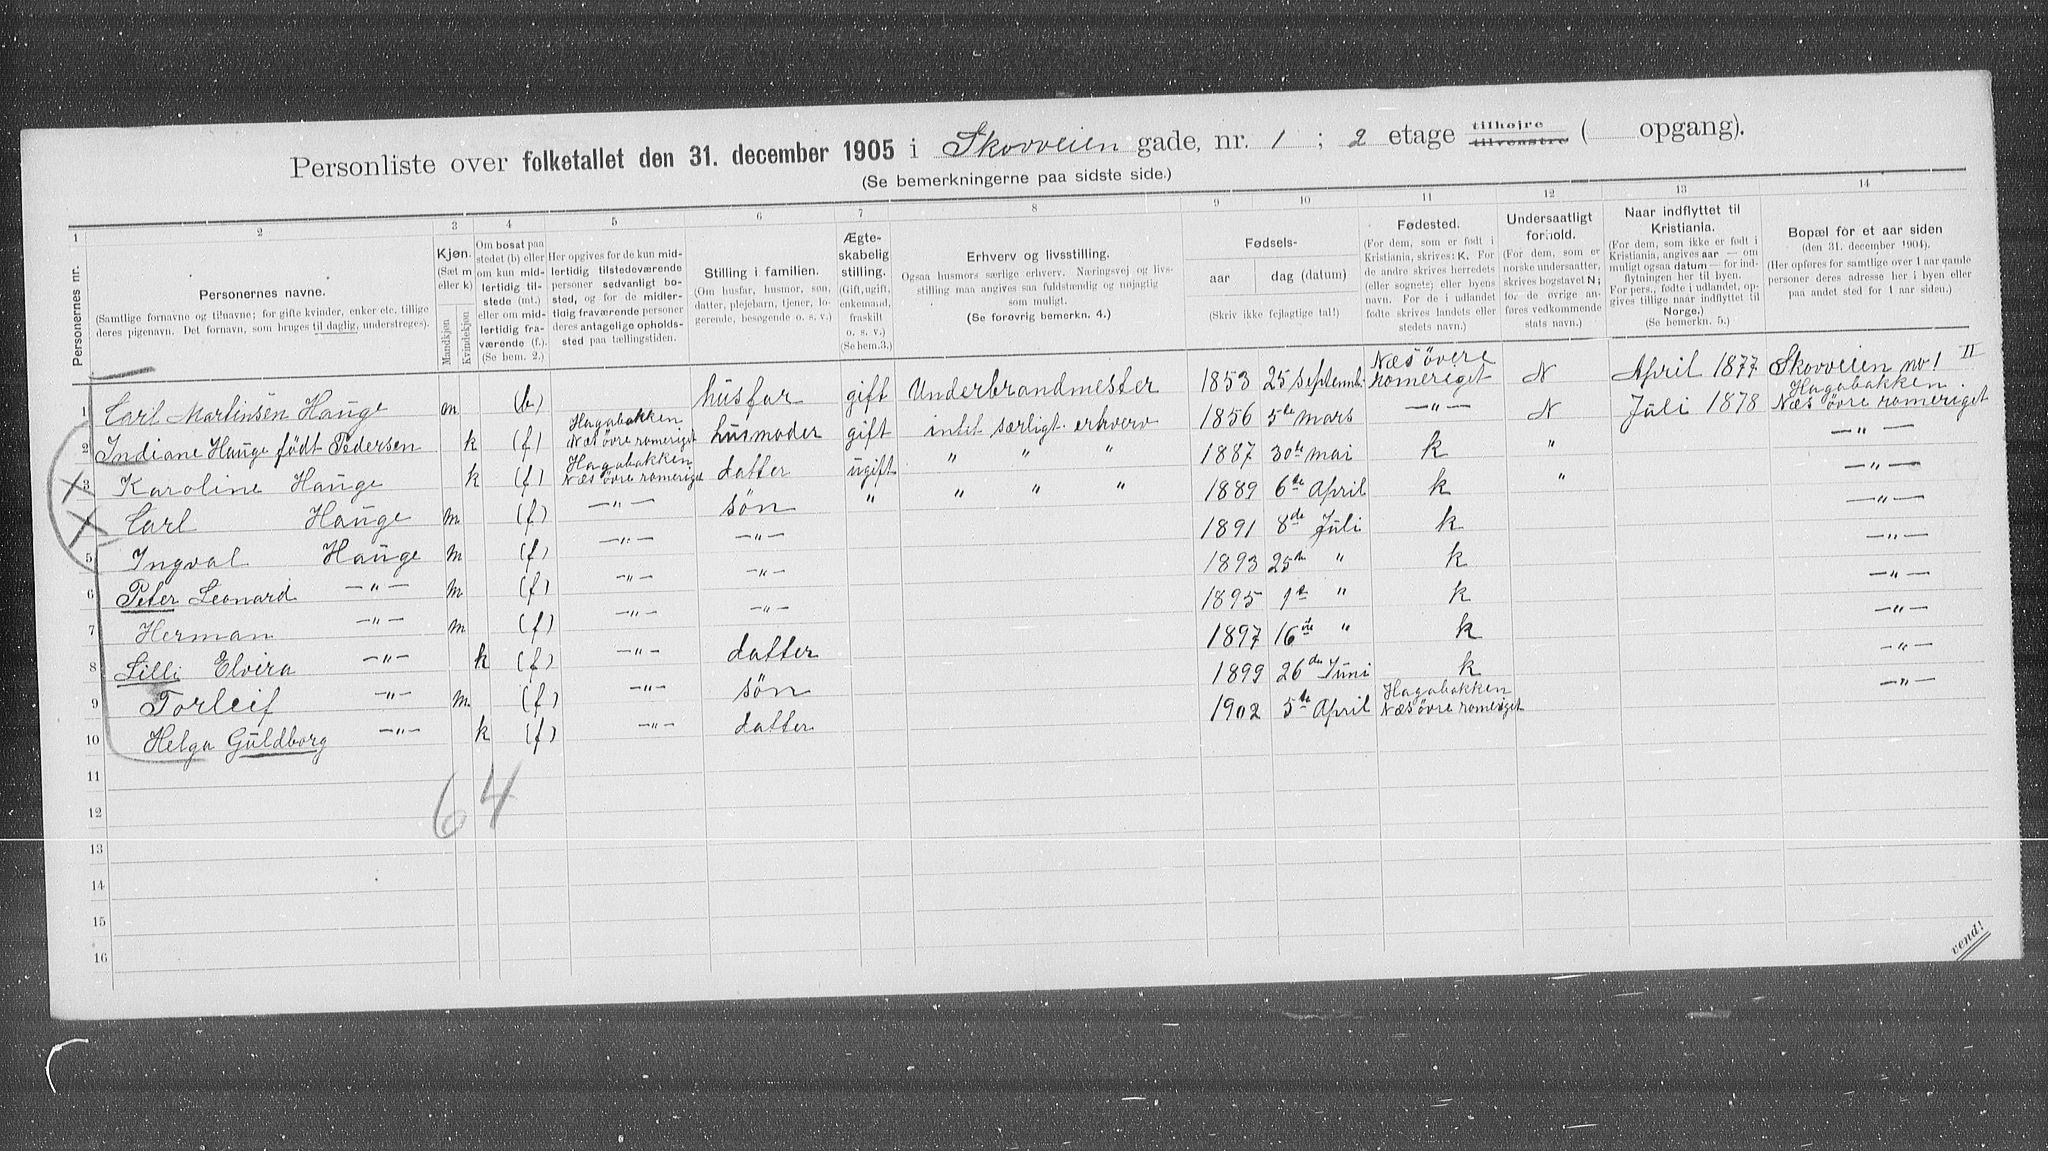 Personliste over folketallet den 31. december 1905 i Skovveien gade, nr. 1 ; 2 etage tilhøjre tilvenstre ( opgang).
(Se bemerkningerne paa sidste side.)
1 2 3 4 5 6 7 8 9 10 11 12 13 14
Personernes nr.
Personernes navne.
(Samtlige fornavne og tilnavne; for gifte kvinder, enker etc. tillige
deres pigenavn. Det fornavn, som bruges til daglig, understreges).
Kjøn.
(Sæt m
eller k)
Mandkjøn
Kvindekjøn
Om bosat paa
stedet (b) eller
om kun mid-
lertidig til-
stede (mt.)
eller om mid-
lertidig fra-
værende (f.).
(Se bem. 2.)
Her opgives for de kun mid-
lertidig tilstedeværende
personer sedvanligt bo-
sted, og for de midler-
tidig fraværende personer
deres antagelige opholds-
sted paa tællingstiden.
Stilling i familien.
(Om husfar, husmor, søn,
datter, plejebarn, tjener, lo-
gerende, besøgende o. s. v.)
Ægte-
skabelig
stilling.
(Gift, ugift,
enkemand,
fraskilt
o. s. v.)
(Se bem.3.)
Erhverv og livsstilling.
Ogsaa husmors særlige erhverv. Næringsvej og livs-
stilling maa angives saa fuldstændig og nøjagtig
som muligt.
(Se forøvrig bemerkn. 4.)
Fødsels-
aar dag (datum)
(Skriv ikke fejlagtige tal!)
Fødested.
(For dem, som er født i
Kristiania, skrives: K. For
de andre skrives herredets
(eller sognets) eller byens
navn. For de i udlandet
fødte skrives landets eller
stedets navn.)
Undersaatligt
forhold.
(For dem, som er
norske undersaatter,
skrives bogstavet N;
for de øvrige an-
føres vedkommende
stats navn.)
Naar indflyttet til
Kristiania.
(For dem, som ikke er født i
Kristiania, angives aar — om
muligt ogsaa datum — for ind-
flytningen her til byen.
For pers., fødte i udlandet, op-
gives tillige naar indflyttet til
Norge.)
(Se bemerkn. 5.)
Bopæl for et aar siden
(den 31. december 1904).
(Her opføres for samtlige over 1 aar gamle
personer deres adresse her i byen eller
paa andet sted for 1 aar siden.)
1 Carl Martinsen Hauge m (b) husfar gift Underbrandmester 1853 25 Septemb. Næs øvre romeriget N April 1877 Skovveien no 1 II
2 Indiane Hauge født Pedersen k (f) Hagabakken Næs øvre romeriget husmoder gift intet særligt erhverv 1856 5te mars —"— N Juli 1878 Hagabakken Næs øvre romeriget
3 Karoline Hauge k (f) Hagabakken Næs øvre romeriget datter ugift " " " 1887 30te mai k " —"—
Carl Hauge m (f) —"— søn " " " " 1889 6te April k " —"—
5 Ingval Hauge m (f) —"— —"— 1891 8de Juli k —"—
6 Peter Leonard —"— m (f) —"— —"— 1893 25te " k —"—
7 Herman —"— m (f) —"— —"— 1895 1te " k —"—
8 Lilli Elvira —"— k (f) —"— datter 1897 16de " k —"—
9 Torleif —"— m (f) —"— søn 1899 26de Juni k —"—
10 Helga Guldborg —"— k (f) —"— datter 1902 5te April Hagabakken Næs øvre romeriget —"—
11
64
12
13
14
15
16
vend!